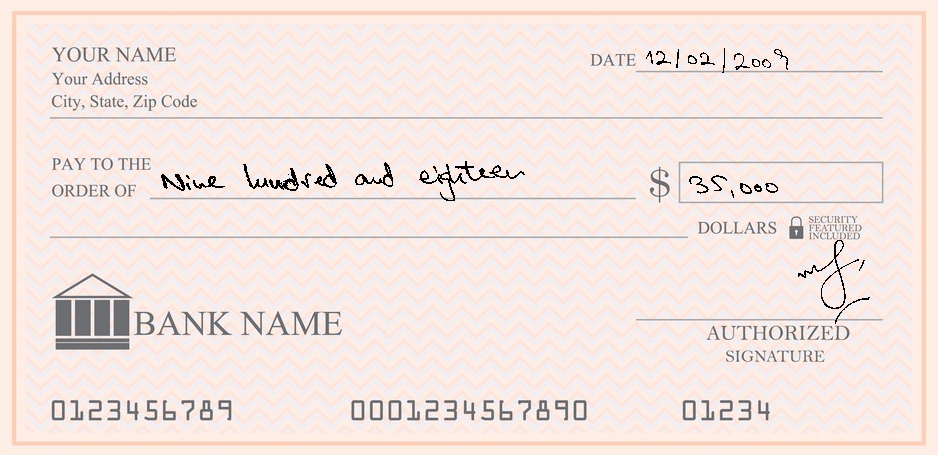 YOUR NAME
Your Address
City, State, Zip Code
DATE 12/02/2009
PAY TO THE
ORDER OF Nine hundred and eighteen $ 35,000
DOLLARS SECURITY
FEATURED
INCLUDED
BANK NAME
AUTHORIZED
SIGNATURE
0123456789 0001234567890 01234